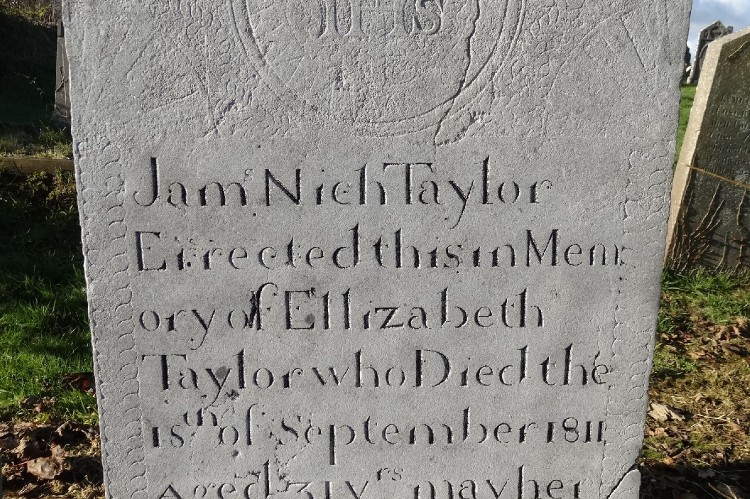 IHS
Jamˢ Nich Taylor
Errected this in Mem
ory of Ellizabeth
Taylor who Died the
18ᵗʰ of September 1811
Aged 31 Yʳˢ may her